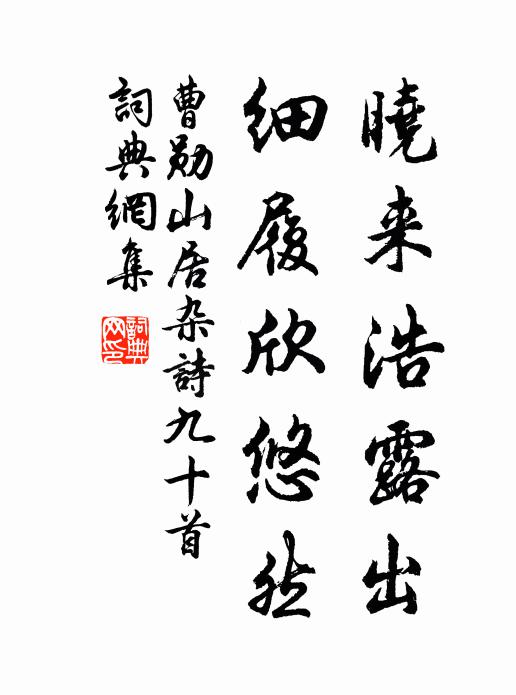 曉来浩露出
细履欣悠然
曹勛山居杂詩九十首
詞典網集
詞典网印